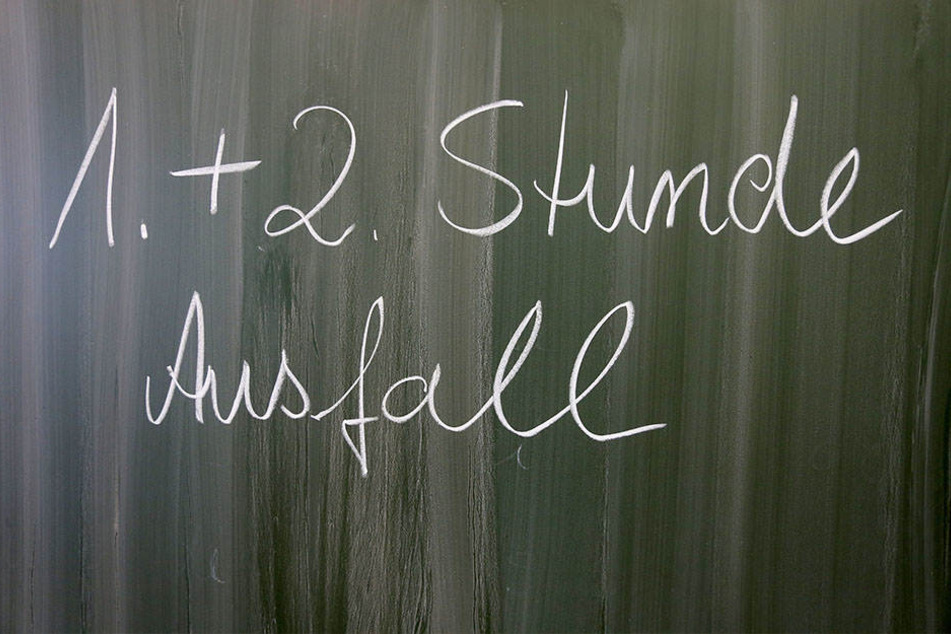 1. + 2. Stunde
Ausfall